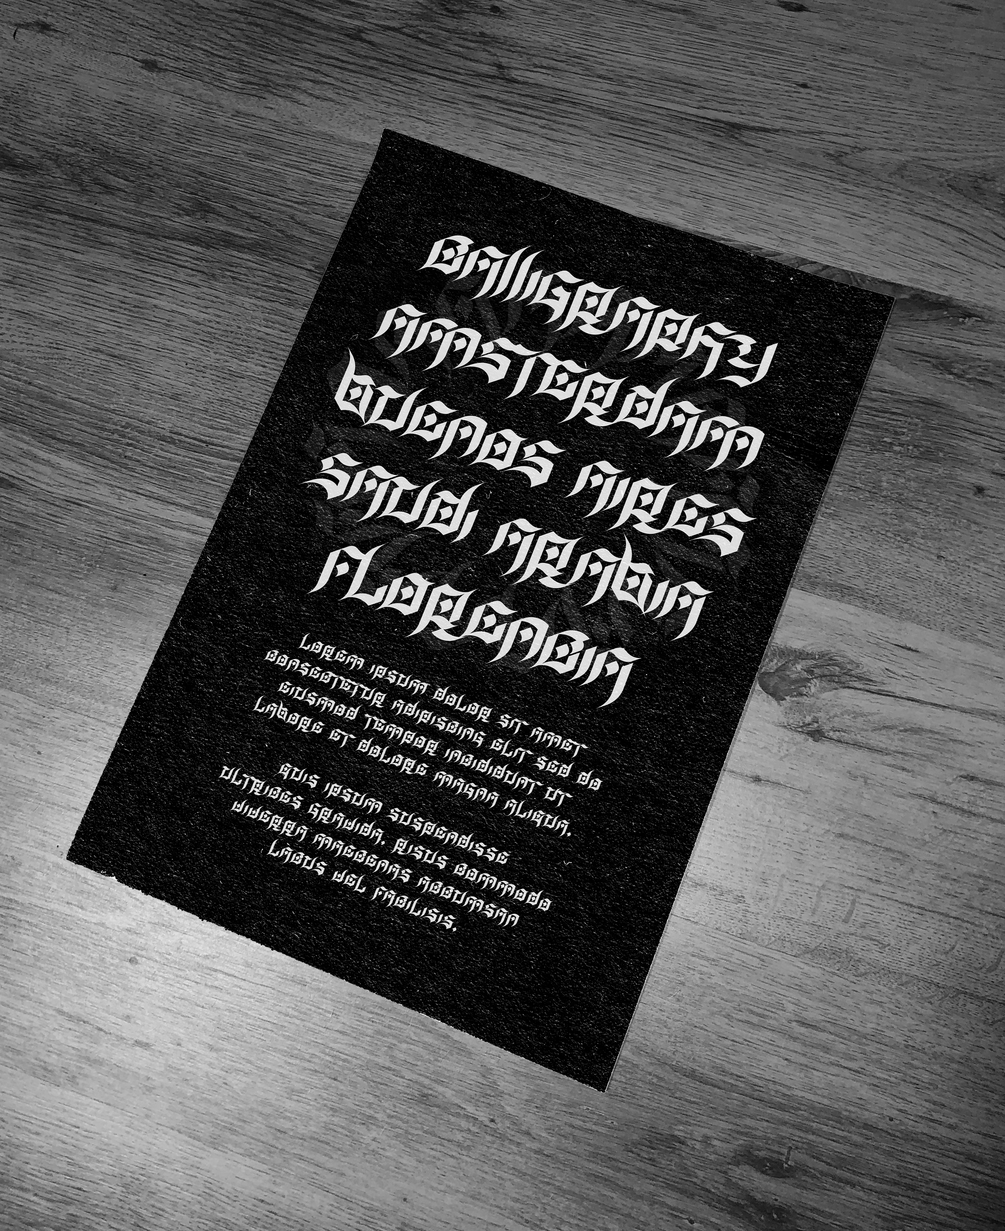 CALLIGRAPHY
AMSTERDAM
BUENOS AIRES
SAUDI ARABIA
FLORENCIA
LOREM IPSUM DOLOR SIT AMET
CONSECTETUR ADIPISCING ELIT SED DO
EIUSMOD TEMPOR INCIDIDUNT UT
LABORE ET DOLORE MAGNA ALIQUA.
QUIS IPSUM SUSPENDISSE
ULTRICES GRAVIDA. RISUS COMMODO
VIVERRA MAECENAS ACCUMSAN
LACUS VEL FACILISIS.